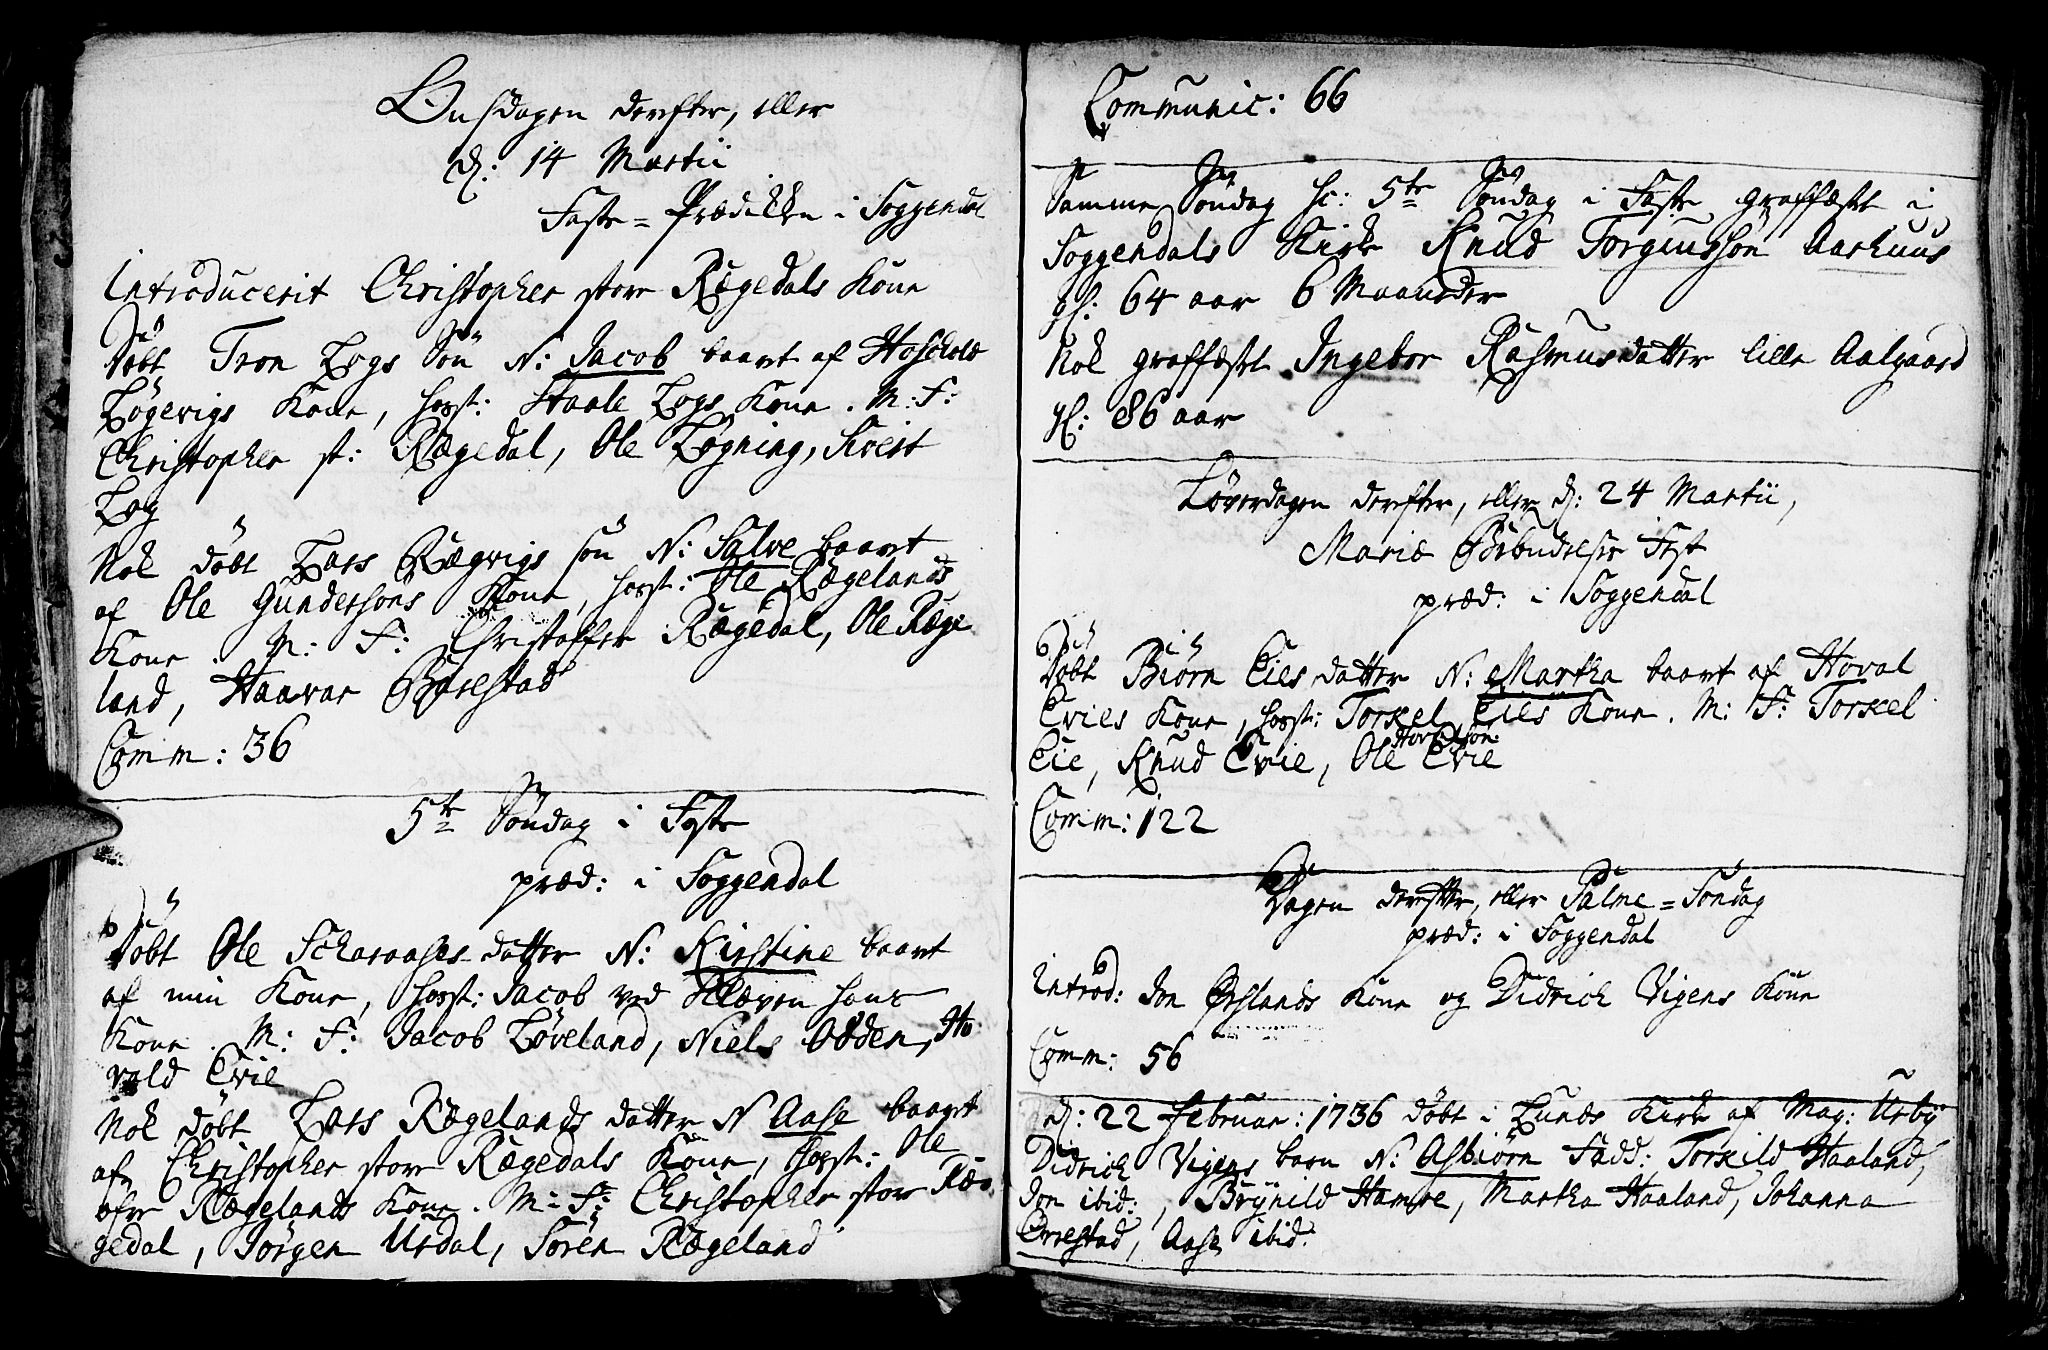 Onsdagen derefter, eller
d: 14 Martii
Faste=Prædikken i Soggendal
Introducerit Christopher store Rægedals Kone
Døbt Tron Logs Søn N: Jacob baaret af Hoskold
Løgevigs Kone, hosst: Staale Logs Kone. M: F:
Christopher st: Rægedal, Ole Løgning, Sivert
Log
Nok døbt Lars Rægevigs søn N: Salve baaret
af Ole Gundersøns Kone, hosst: Ole Rægelands
Kone. M: F: Christoffer Rægedal, Ole Ræge
land, Haavar Barestad
Comm: 36
5te Søndag i Faste
præd: i Soggendal
Døbt Ole Scharaases datter N: Kirstine baaret
af min Kone, hosst: Jacob ved Elæven hans
Kone. M: F: Jacob Løveland, Niels Odden, Ho
vald Evie
Nok døbt Lars Rægelands datter N Aase baaret
af Christopher store Rægedals Kone, hosst: Ole
øfre Rægelands Kone. M: F: Christopher store Ræ
gedal, Jørgen Urdal, Søren Rægeland
Communic: 66
Samme Søndag sc: 5te Søndag i Faste graffæstet i
Soggendals Kirke Knud Torgiussøn Aarhuus
gl: 64 aar 6 Maaneder
Nok graffæstet Ingebor Rasmusdatter lille Aalgaard
gl: 86 aar
Løverdagen derefter, eller d: 24 Martii,
Mariæ Bebudelses Fest
præd: i Soggendal
Døbt Biørn Eies datter N: Martha baaret af Hoval
Evies Kone, hosst: Torkel Eies Kone. M: F: Torkel
Eie, Knud Evie, Ole Hovalsøn Evie
Comm: 122
Dagen derefter, eller Palme=Søndag
præd: i Soggendal
Introd: Jon Øislands Kone og Didrich Vigens Kone
Comm: 56
d: 22 Februar: 1736 døbt i Lunds Kirke af Mag: Ursÿ
Didrich Vigens barn N: Asbiørn Fadd: Torkild Haaland,
Jon ibid:, Brÿnild Hamre, Martha Haaland, Johanna
Ørrestad, Aase ibid: